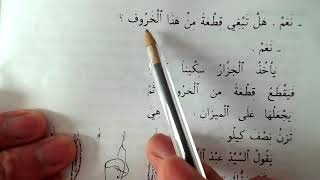 - نَعَمْ . هَلْ تَبْغِي قِطْعَةً مِنْ هَذَا ٱلْخَرُوفِ ؟
- نَعَمْ .
يَأْخُذُ ٱلْجَزَّارُ سِكِّينًا
فَيَقْطَعُ قِطْعَةً مِنَ
يَجْعَلُهَا عَلَى ٱلْمِيزَانِ : هِيَ
تَزِنُ نِصْفَ كِيلُو
يَقُولُ ٱلسَّيِّدُ عَبْدُ